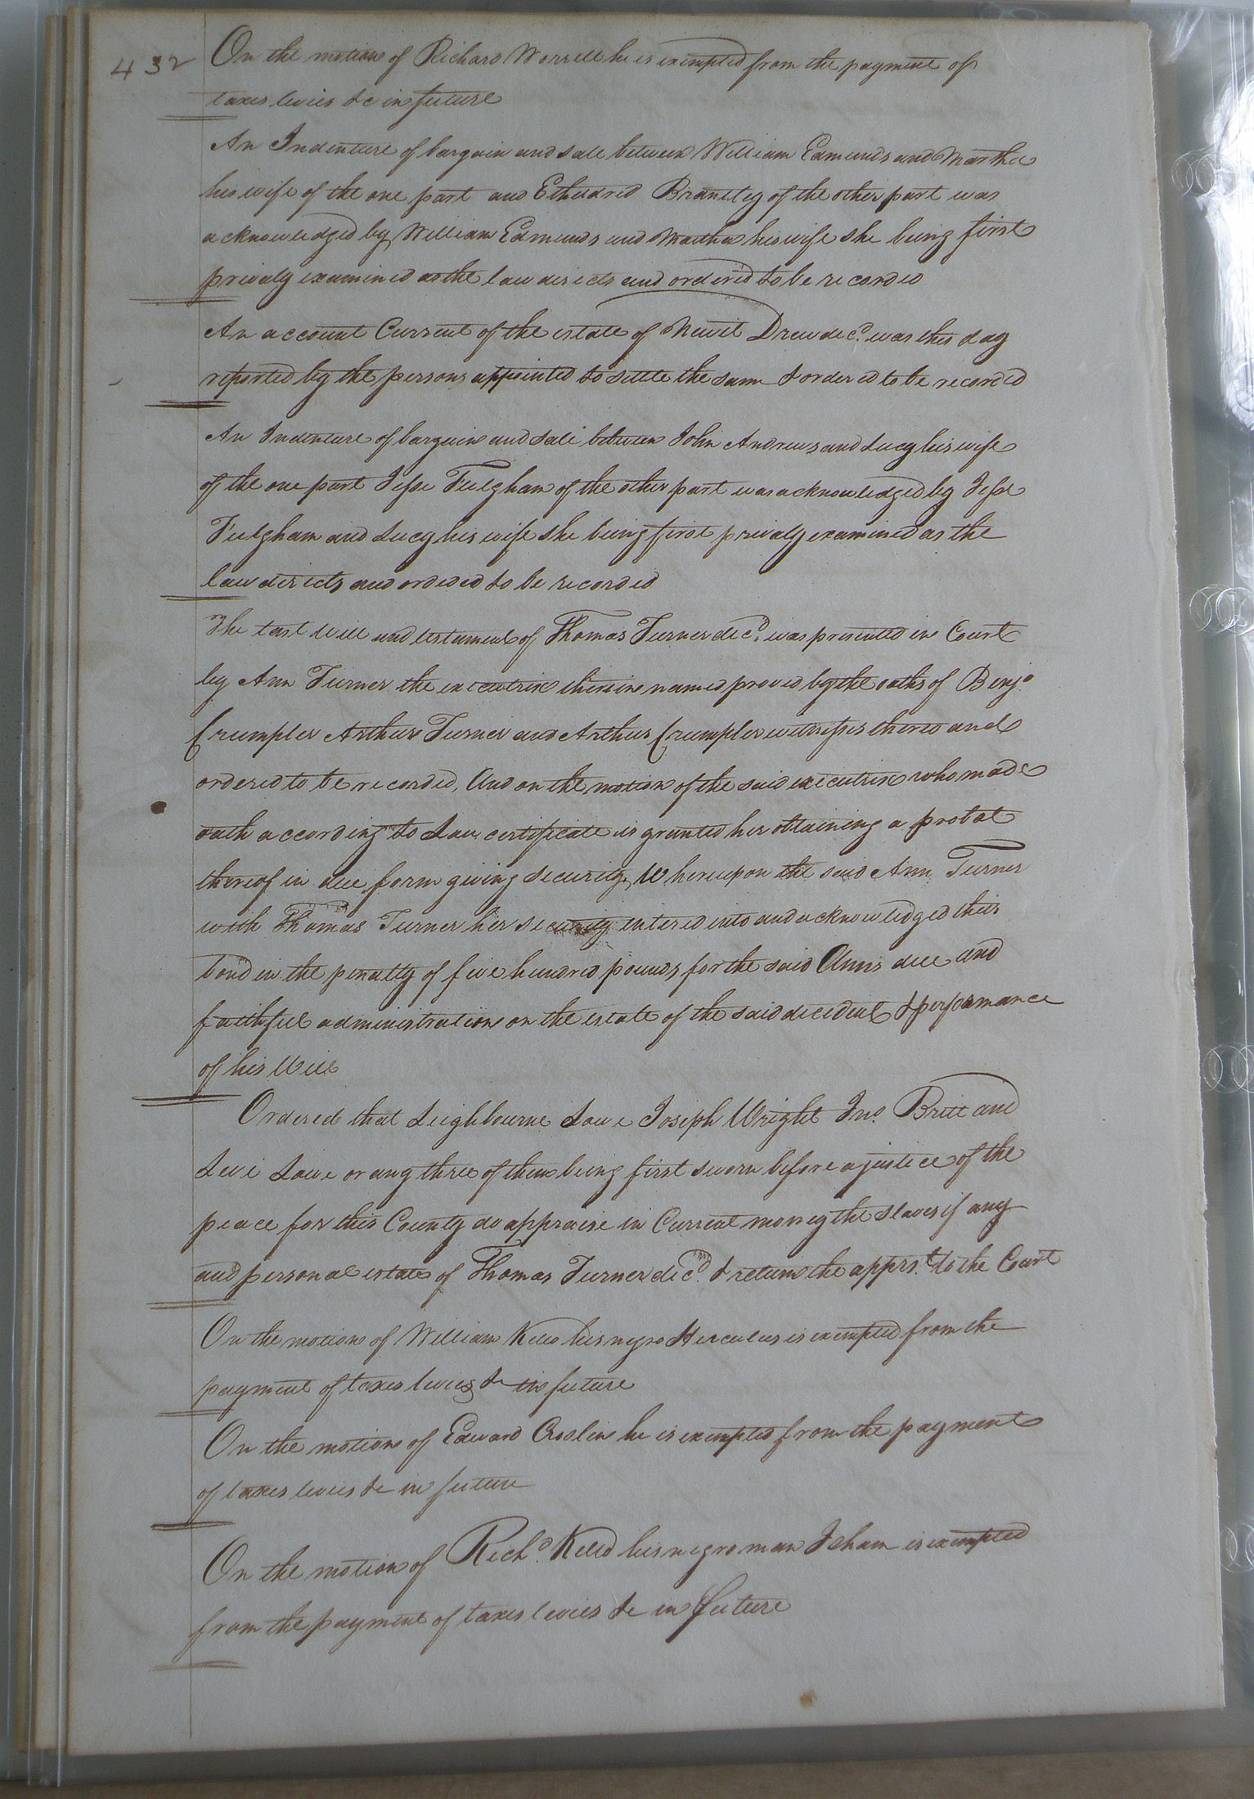 432
On the motion of Richard Worrell he is exempted from the payment of
taxes levies &c in future
An Indenture of bargain and sale between William Edmunds and Martha
his wife of the one part and Etheldred Brantley of the other part was
acknowledged by William Edmunds and Martha his wife she being first
privaly examined as the law directs and ordered to be recorded
An account Current of the estate of Newit Drew decd. was this day
reported by the persons appointed to settle the same & ordered to be recorded
An Indenture of bargain and sale between John Andrews and Lucy his wife
of the one part Jesse Fulgham of the other part was acknowledged by Jesse
Fulgham and Lucy his wife she being first privaly examined as the
law directs and ordered to be recorded
The last will and testament of Thomas Turner decd. was presented in Court
by Ann Turner the executrix therein named proved by the oaths of Benja
Crumpler Arthur Turner and Arthur Crumpler witnesses thereto and
ordered to be recorded, And on the motion of the said executrix who made
oath according to Law certificate is granted her obtaining a probat
thereof in due form giving security, Whereupon the said Ann Turner
with Thomas Turner her security entered into and acknowledged their
bond in the penalty of five hundred pounds for the said Anns due and
faithful administration on the estate of the said decedent & performance
of his Will
Ordered that Leighbourne Lowe Joseph Wright Jno. Britt and
Levi Lowe or any three of them being first sworn before a justice of the
peace for this County do appraise in Current money the slaves if any
and personal estate of Thomas Turner decd. & return the apprst. to the Court
On the motion of William Kello his negro Herculus is exempted from the
payment of taxes levies &c in future
On the motion of Edward Croslin he is exempted from the payment
of taxes levies &c in future
On the motion of Richd. Kello his negro man Isham is exempted
from the payment of taxes levies &c in future